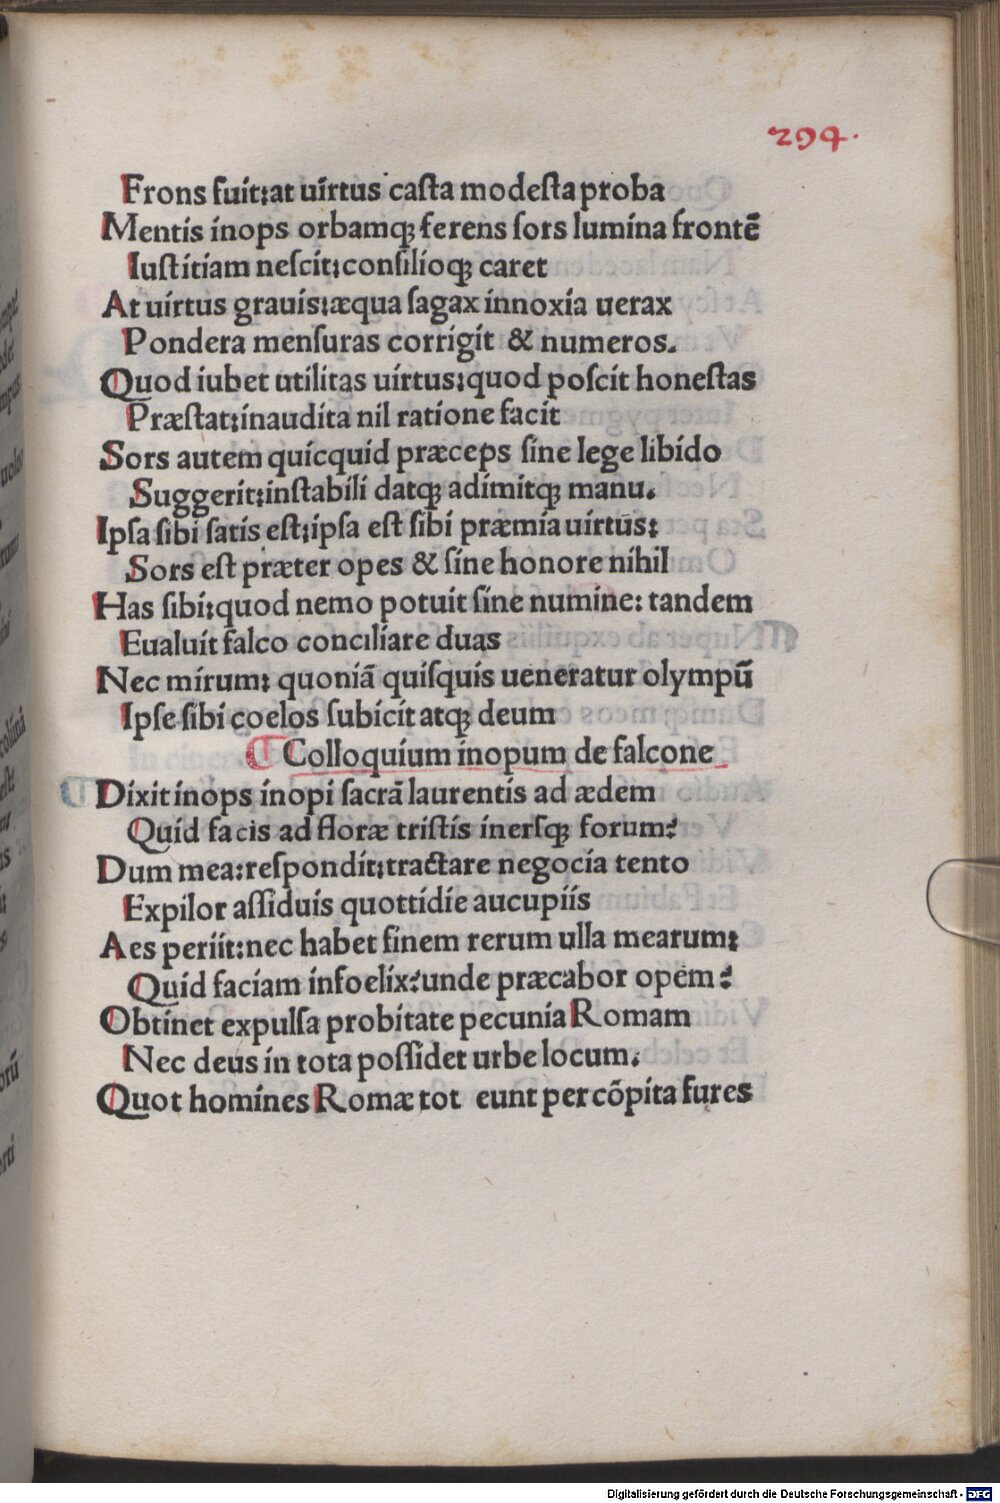 294.
Frons fuit:at uirtus caſta modeſta proba
Mentis inops orbamqꝫ ferens ſors lumina frontē
Iuſtitiam neſcit:conſilioqꝫ caret
At uirtus grauis:æqua ſagax innoxia uerax
Pondera menſuras corrigit & numeros.
Quod iubet utilitas uirtus:quod poſcit honeſtas
Præſtat:inaudita nil ratione facit
Sors autem quicquid præceps ſine lege libido
Suggerit:inſtabili datqꝫ adimitqꝫ manu.
Ipſa ſibi ſatis eſt:ipſa eſt ſibi præmia uirtus:
Sors eſt præter opes & ſine honore nihil
Has ſibi:quod nemo potuit ſine numine: tandem
Eualuit falco conciliare duas
Nec mirum: quoniā quiſquis ueneratur olympū
Ipſe ſibi coelos ſubicit atqꝫ deum
Colloquium inopum de falcone
Dixit inops inopi ſacrā laurentis ad ædem
Quid facis ad floræ triſtis inerſqꝫ forum?
Dum mea:reſpondit:tractare negocia tento
Expilor aſſiduis quottidie aucupiis
Aes periit:nec habet finem rerum ulla mearum:
Quid faciam infoelix?unde præcabor opem?
Obtinet expulſa probitate pecunia Romam
Nec deus in tota poſſidet urbe locum.
Quot homines Romæ tot eunt per cōpita fures
Digitalisierung gefördert durch die Deutsche Forschungsgemeinschaft - DFG